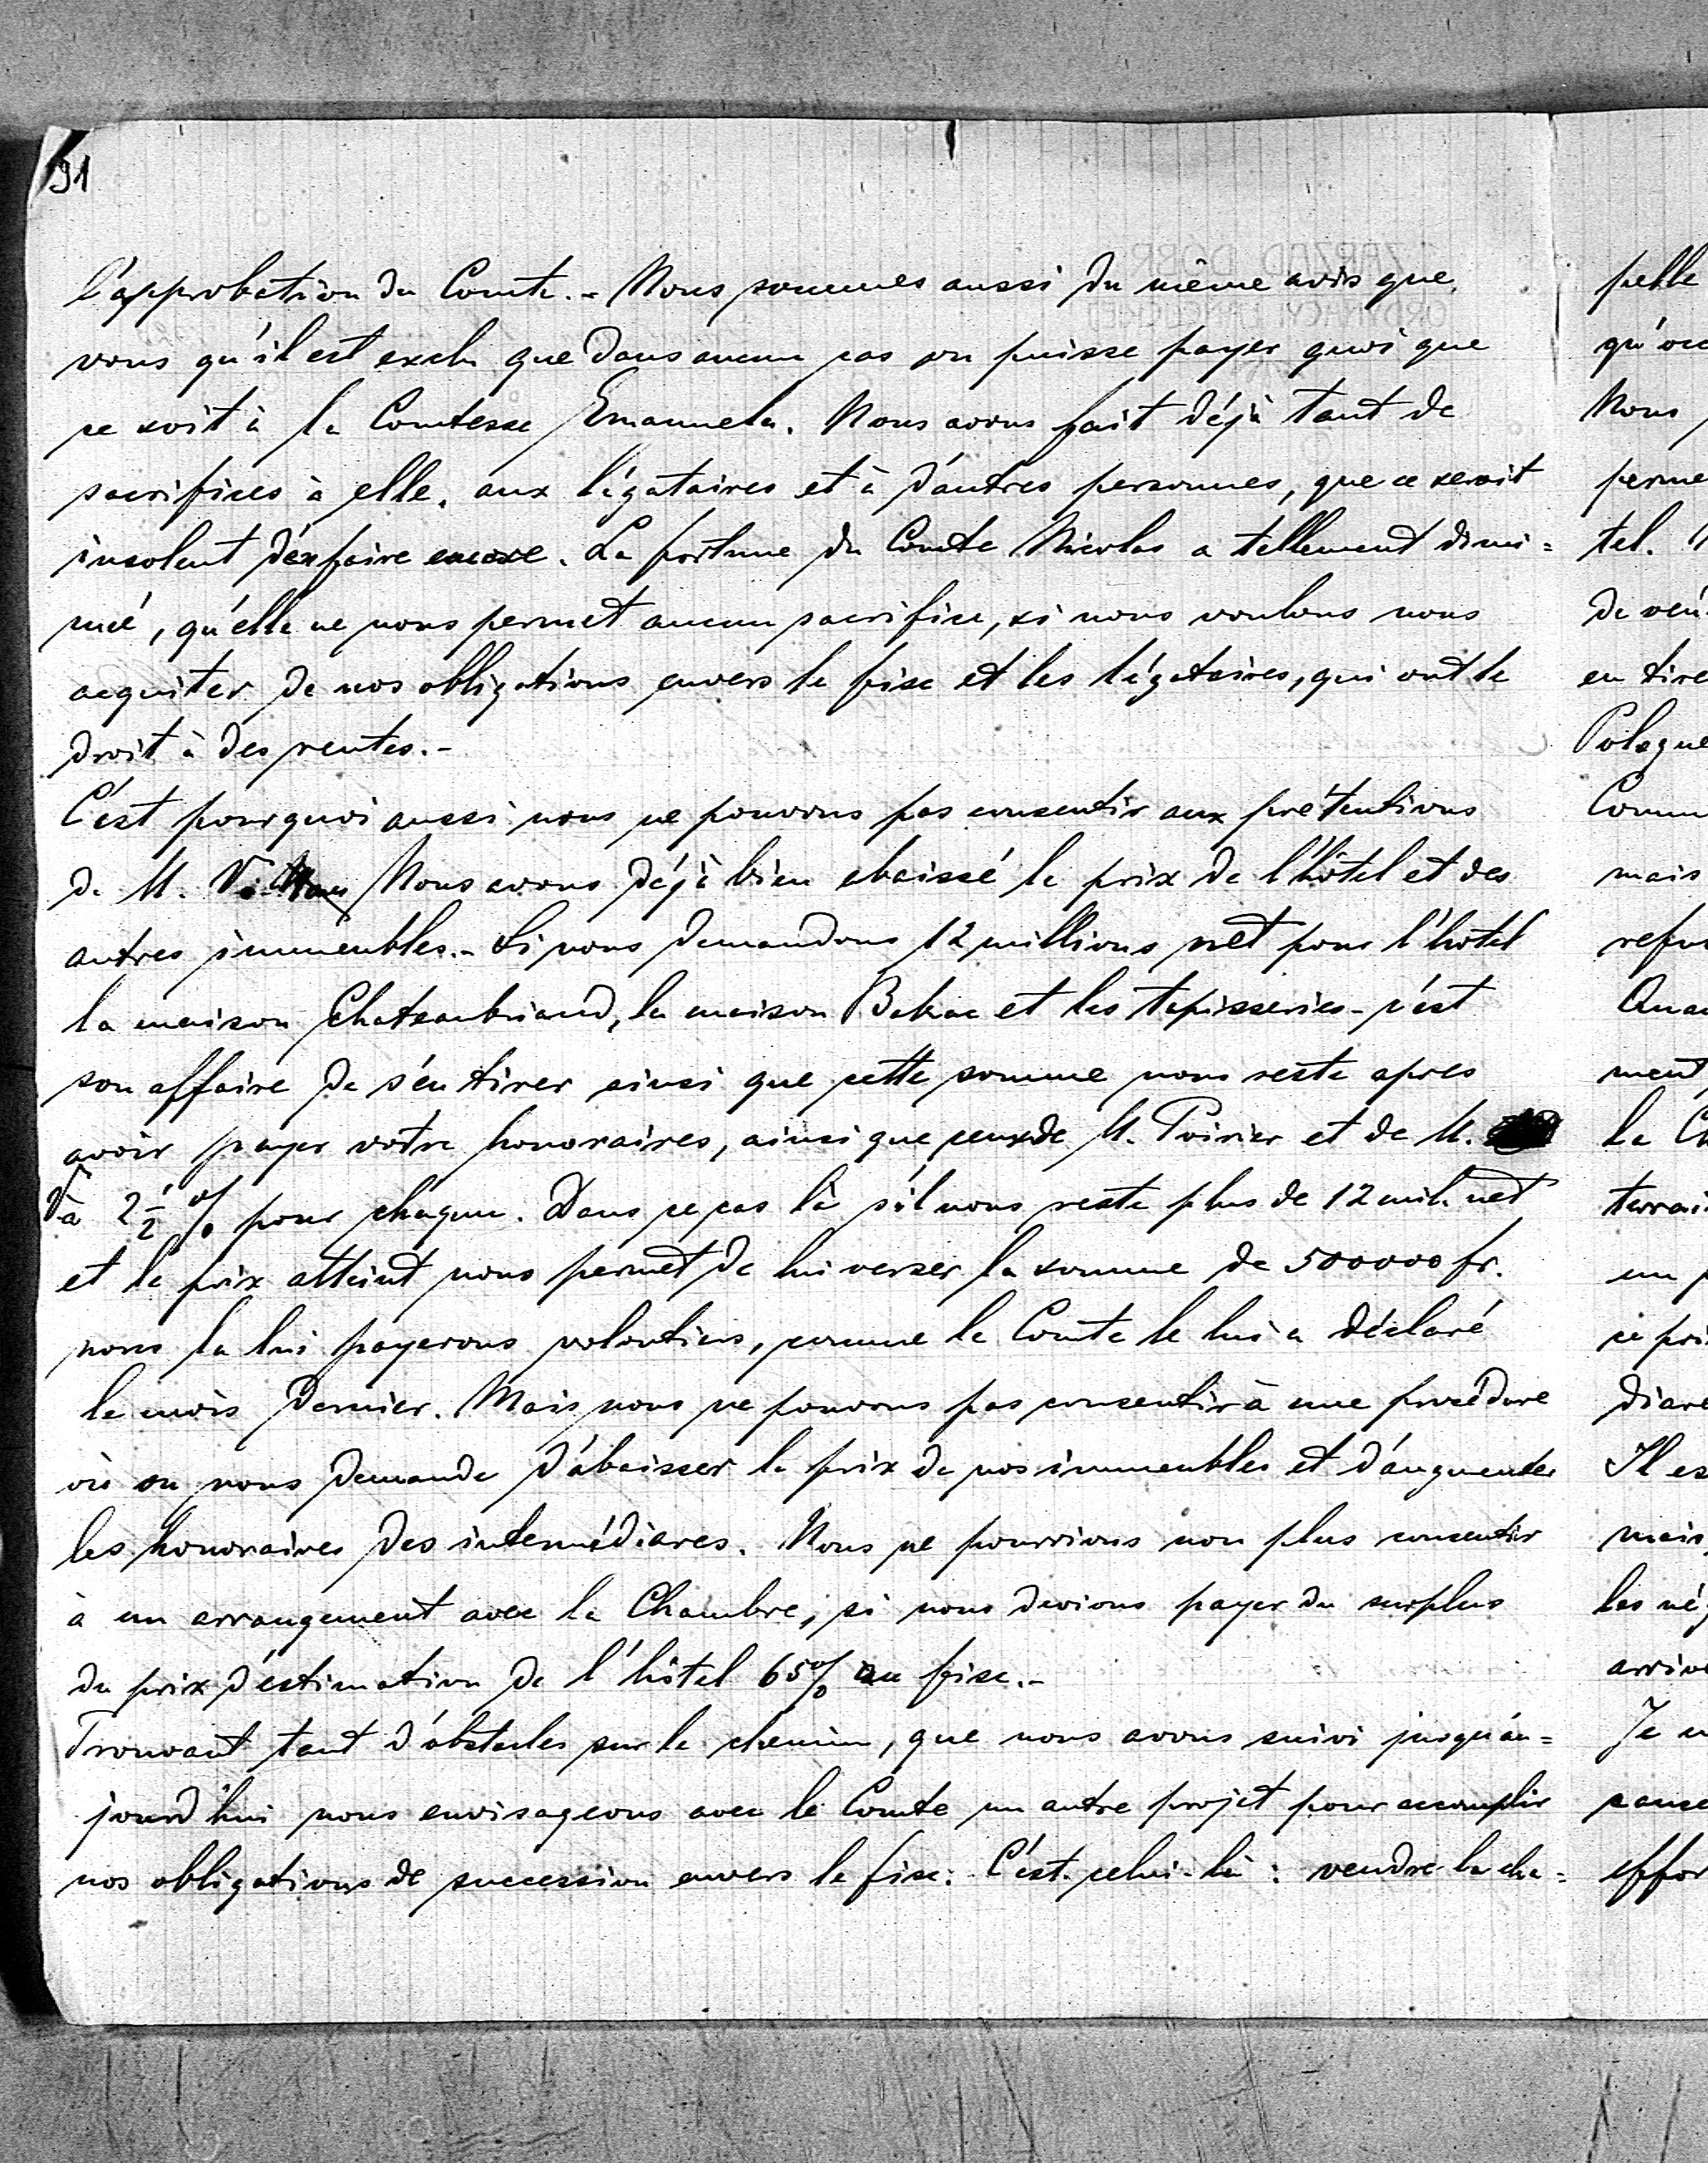 91
l'approbation du Comte.- Nous sommes aussi du même avis que
vous qu'il est exclu que dans aucun cas on puisse payer quoi que
ce soit à la Comtesse Emanuela. Nous avons fait déjà tant de
sacrifices à elle, aux légataires et à d'autres personnes, que ce serait
insolent d'en faire encore. La fortune du Comte Nicolas a tellement dimi=
nué, qu'elle ne nous permet aucun sacrifice, si nous voulons nous
acquiter de nos obligations envers le fisc et les légataires, qui ont le
droit à des rentes.-
C'est pourquoi aussi nous ne pouvons pas consentir aux prétentions
de M. Nous avons déjà bien abaissé le prix de l'hôtel et des
autres immeubles.- Si nous demandons 12 millions net pour l'hôtel
la maison Chateaubriand, la maison Balzac et les tapisseries - c'est
son affaire de s'en tirer ainsi que cette somme nous reste apres
avoir payer votre honoraires, ainsi que ceux de M. Poirier et de M.
V à 2 1/2 % pour chaque. Dans ce cas là s'il nous reste plus de 12 mil. net
et le prix atteint nous permet de lui verser la somme de 500000 fr.
nous la lui payerons volontiers, comme le Comte le lui a déclaré
le mois dernier. Mais nous ne pouvons pas consentir à une procédure
où on nous demande d'abaisser le prix de nos immeubles et d'augmenter
les honoraires des intermédiares. Nous ne pourrions non plus consentir
à un arrangement avec la Chambre, si nous devions payer du surplus
du prix d'estimation de l'hôtel 65% au fisc.-
Trouvant tant d'obstacles sur le chemin, que nous avons suivi jusqu'au=
jourd'hui nous envisageons avec le Comte un autre projet pour accomplir
nos obligations de succession envers le fisc: C'est celui-là: vendre la cha=
pelle
Nous
tel.
en tire
Pologne
mais
Quan
ment
Il es
mais
Je